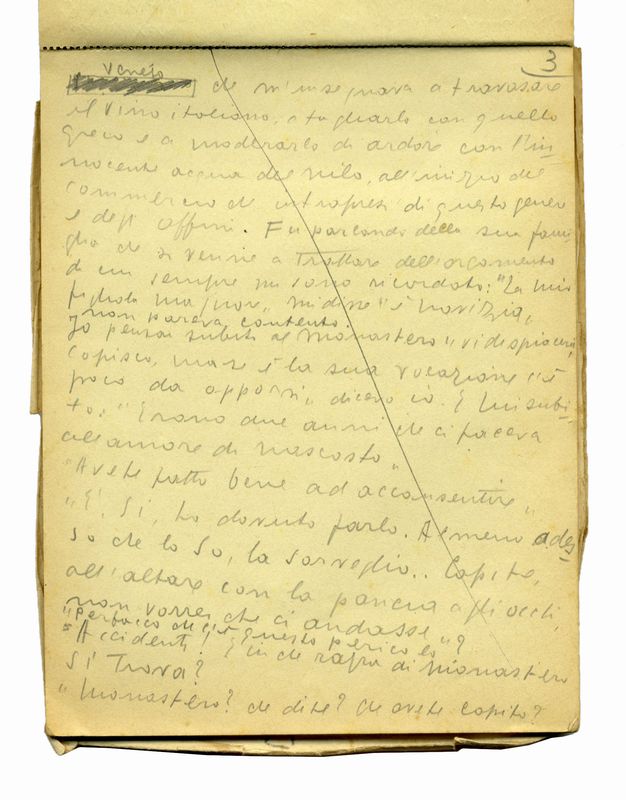 3
Veneto
che m'insegnava a travasare
il vino italiano, a tagliarlo con quello
greco e a moderarlo di ardore con l'in-
nocente acqua del nilo, all'inizio del
commercio che intrapresi di questo genere
e degli affini. Fu parlando della sua fami-
glia che si venne a trattare dell'argomento
di cui sempre mi sono ricordato: "La mia
figliola maggiore" mi disse "è novizia,
non pareva contento.
Io pensai subito al monastero "vi dispiacerà,
capisco, ma se è la sua vocazione c'è
poco da opporsi" dicevo io. E lui subi-
to: "Erano due anni che ci faceva
all'amore di nascosto"
"Avete fatto bene ad acconsentire"
"E, sì, ho dovuto farlo. Almeno ades-
so che lo so, la sorveglio.. Capite,
all'altare con la pancia agli occhi
non vorrei che ci andasse"
"Perbacco che c'è questo pericolo"?
"Accidenti! E in che razza di monastero
si trova?
"Monastero? che dite? Che avete capito?